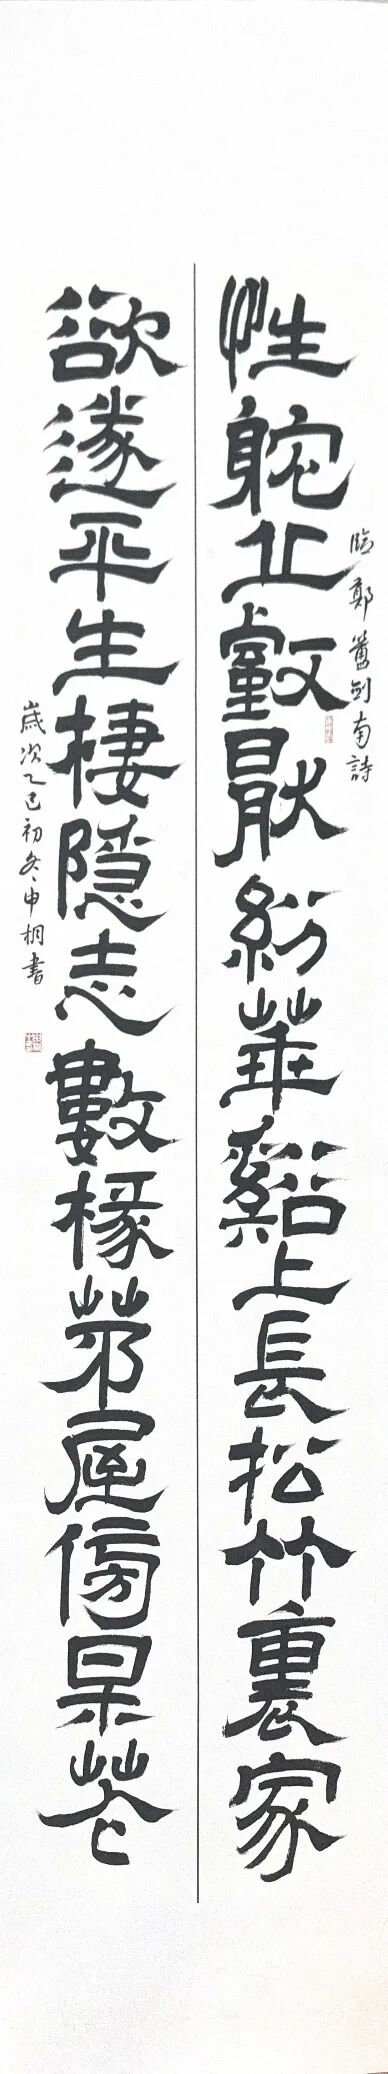 性躭丘壑厭紛華谿上長松竹裏家
臨鄭簠劍南詩
欲遂平生棲隱志數椽茆屋傍某花
歲次乙巳初冬申桐書